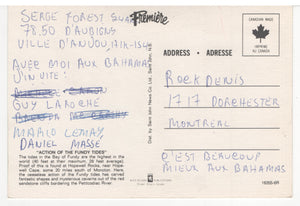 SERGE FOREST
7850 D'AUBIGNY
VILLE D'ANJOU, H1K-1G4
AVEC MOI AUX BAHAMAS
J'INVITE:
GUY LAROCHE
MARIO LEMAY
DANIEL MASSE
"ACTION OF THE FUNDY TIDES"
The tides in the Bay of Fundy are the highest in the world (40 feet at maximum; 28 feet average). Proof of this is found at Hopewell Rocks, near Hopewell Cape, some 20 miles south of Moncton. Here the ceaseless action of the Fundy tides has carved fantastic shapes and mysterious caverns out of the red sandstone cliffs bordering the Petitcodiac River.
Première
CANADIAN MADE
IMPRIMÉ AU CANADA
ADDRESS • ADRESSE
ROCK DENIS
1717 DORCHESTER
MONTREAL
C'EST BEAUCOUP
MIEUX AUX BAHAMAS
Dist. by Saint John News Co. Ltd., Saint John, N.B.